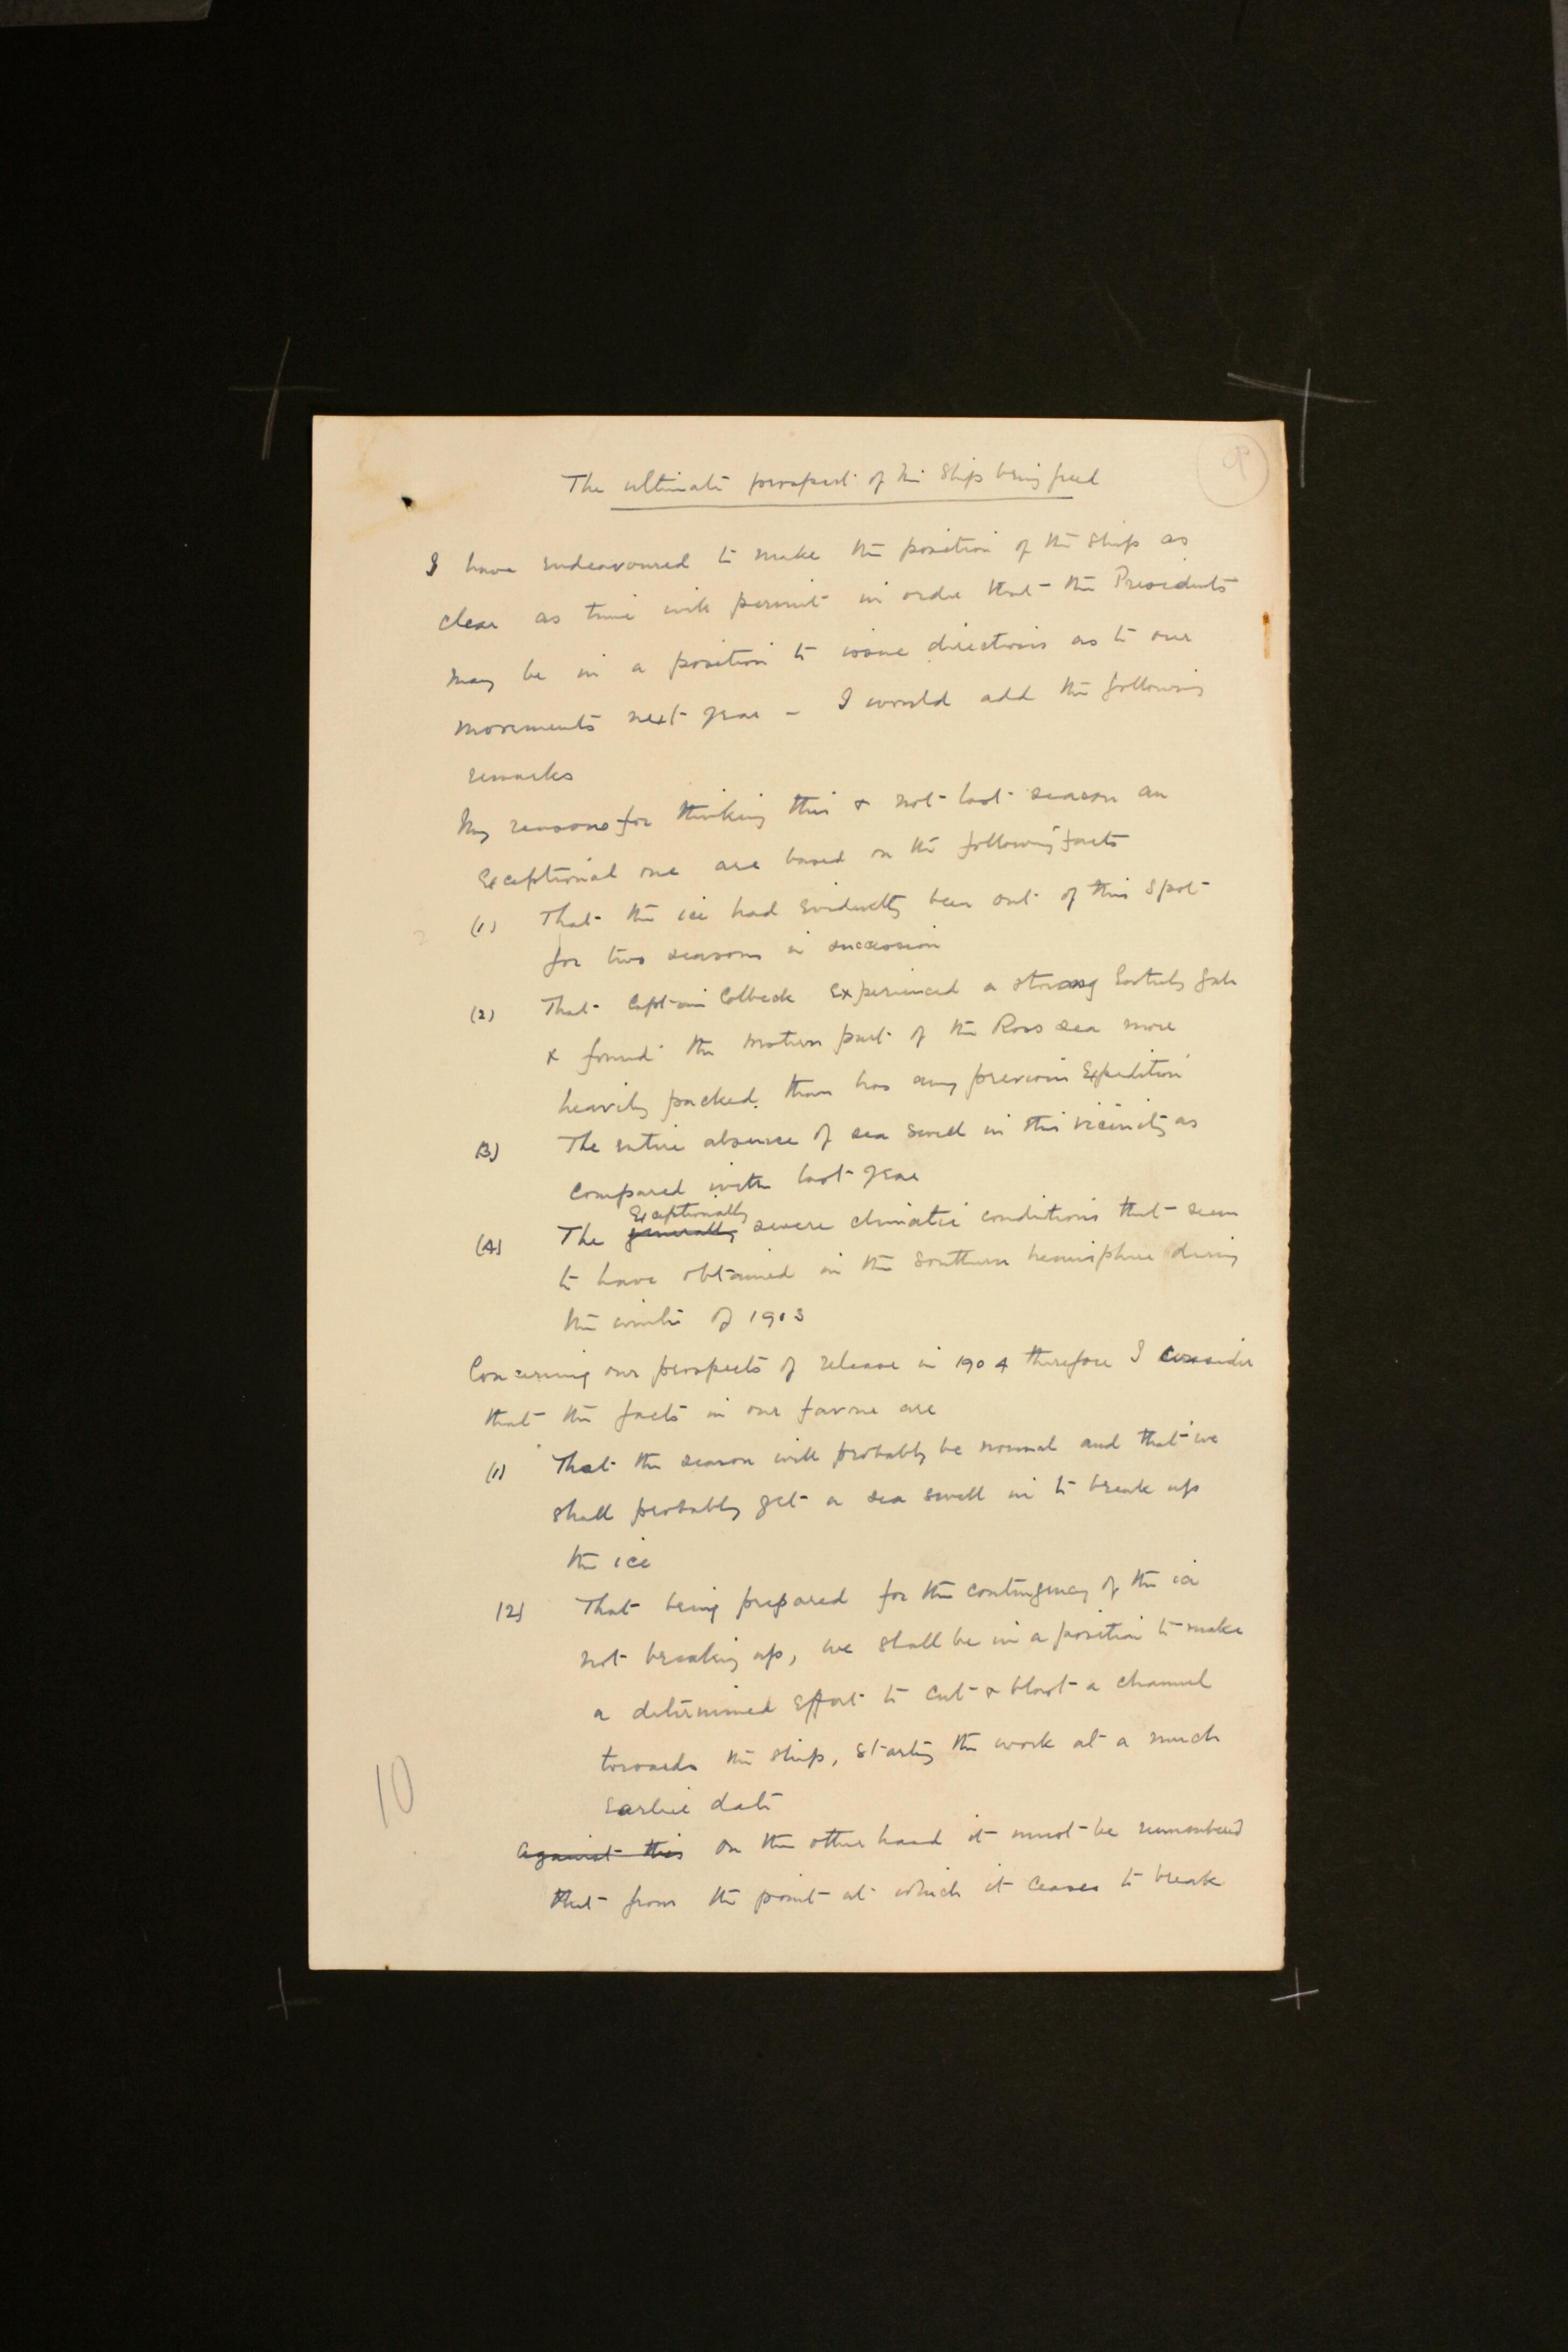 9
The ultimate prospect of the Ship being freed
I have endeavoured to make the position of the ship as
clear as time will permit in order that the Presidents
may be in a position to issue directions as to our
movements next year - I would add the following
remarks
My reasons for thinking this & not last season an
exceptional one are based on the following facts
(1) That the ice had evidently been out of this spot
for two seasons in succession
(2) That Captain Colbeck experienced a strong Easterly gale
& found the western part of the Ross sea more
heavily packed. than has any previous Expedition
(3) The entire absence of sea swell in this vicinity as
compared with last year
Exceptionally
(4) The generally severe climatic conditions that seem
to have obtained in the Southern hemisphere during
the winter of 1903
Concerning our prospects of release in 1904 therefore I consider
that the facts in our favour are
(1) That the season will probably be normal and that we
shall probably get a sea swell in to break up
the ice
(2) That being prepared for the contingency of the ice
not breaking up, we shall be in a position to make
a determined effort to cut & blast a channel
towards the ship, starting the work at a much
earlier date
Against this on the other hand it must be remembered
that from the point at which it ceases to break
10